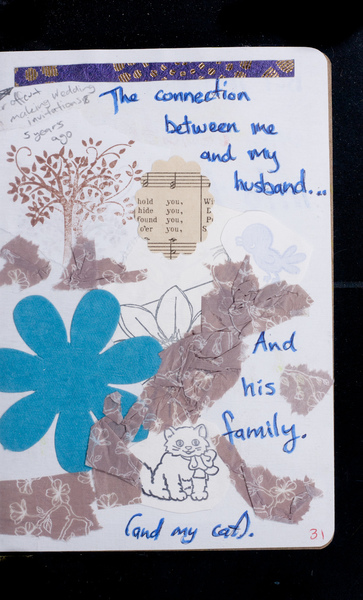 making wedding
invitations
5 years
ago
The connection
between me
and my
husband...
hold you,
hide you,
found you,
o'er you,
And
his
family.
(and my cat).
31